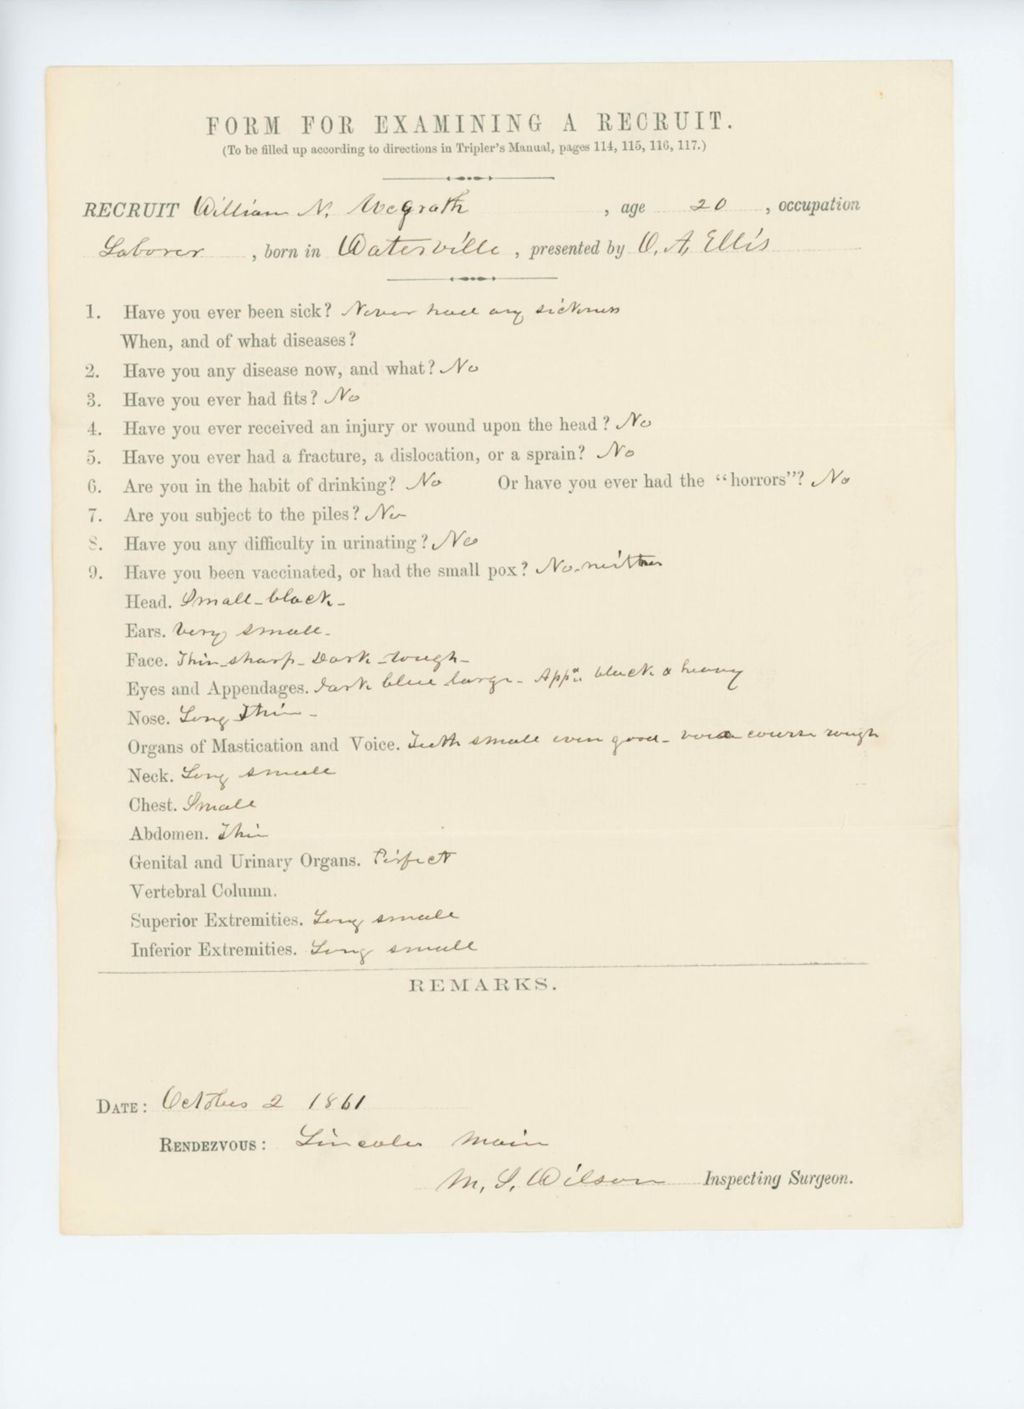 FORM FOR EXAMINING A RECRUIT.
(To be filled up according to directions in Tripler's Manual, pages 114, 115, 116, 117.)
RECRUIT William N. McGrath, age 20, occupation
Laborer, born in Waterville, presented by O. A. Ellis
1. Have you ever been sick? Never had any sickness
When, and of what diseases?
2. Have you any disease now, and what? No
3. Have you ever had fits? No
4. Have you ever received an injury or wound upon the head? No
5. Have you ever had a fracture, a dislocation, or a sprain? No
6. Are you in the habit of drinking? No Or have you ever had the "horrors"? No
7. Are you subject to the piles? No
8. Have you any difficulty in urinating? No
9. Have you been vaccinated, or had the small pox? No-neither
Head. Small-black-
Ears. Very small-
Face. Thin-sharp-Dark-tough-
Eyes and Appendages. Dark blue large- App's. black & heavy
Nose. Long Thin-
Organs of Mastication and Voice. Teeth small even good- voice course rough
Neck. Long small
Chest. Small
Abdomen. Thin
Genital and Urinary Organs. Perfect
Vertebral Column.
Superior Extremities. Long small
Inferior Extremities. Long small
REMARKS.
DATE: October 2 1861
RENDEZVOUS: Lincoln Main
M. S. Wilson Inspecting Surgeon.